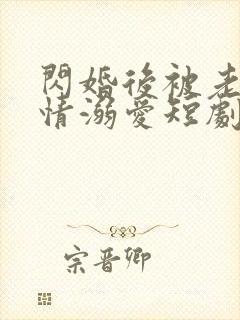 閃婚後被老
情溺愛短劇
宗晋卿